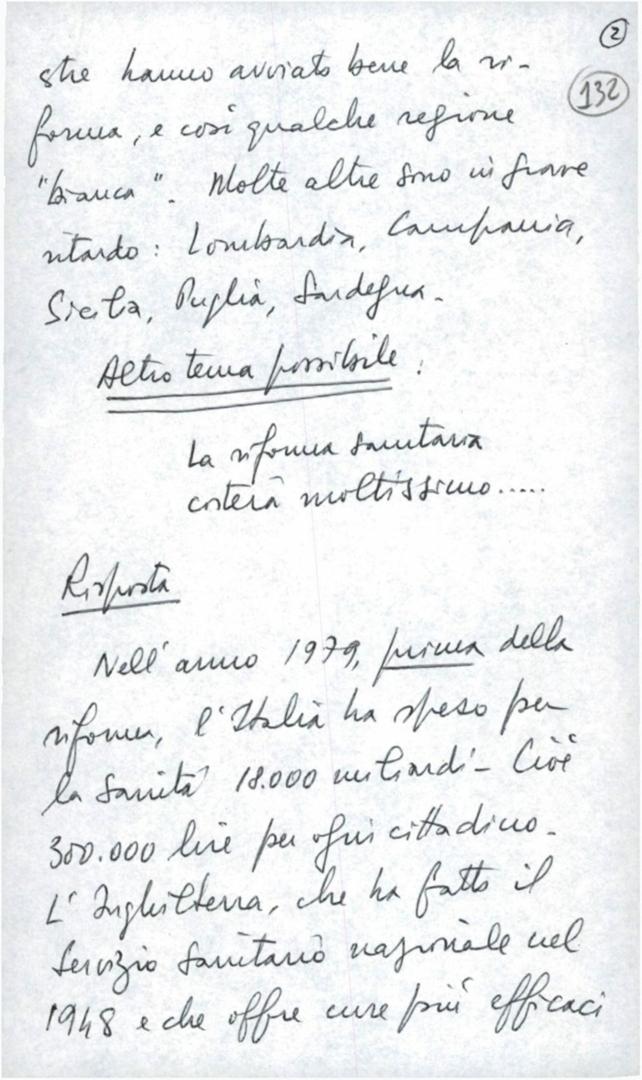 2
132
stre hanno avviato bene la ri-
forma, e così qualche regione
"bianca". Molte altre sono in grave
ritardo: Lombardia, Campania,
Sicilia, Puglia, Sardegna.
Altro tema possibile:
La riforma sanitaria
costerà moltissimo.....
Risposta
Nell'anno 1979, prima della
riforma, l'Italia ha speso per
la Sanità 18.000 miliardi - Cioè
300.000 lire per ogni cittadino.
L'Inghilterra, che ha fatto il
Servizio Sanitario nazionale nel
1948 e che offre cure più efficaci